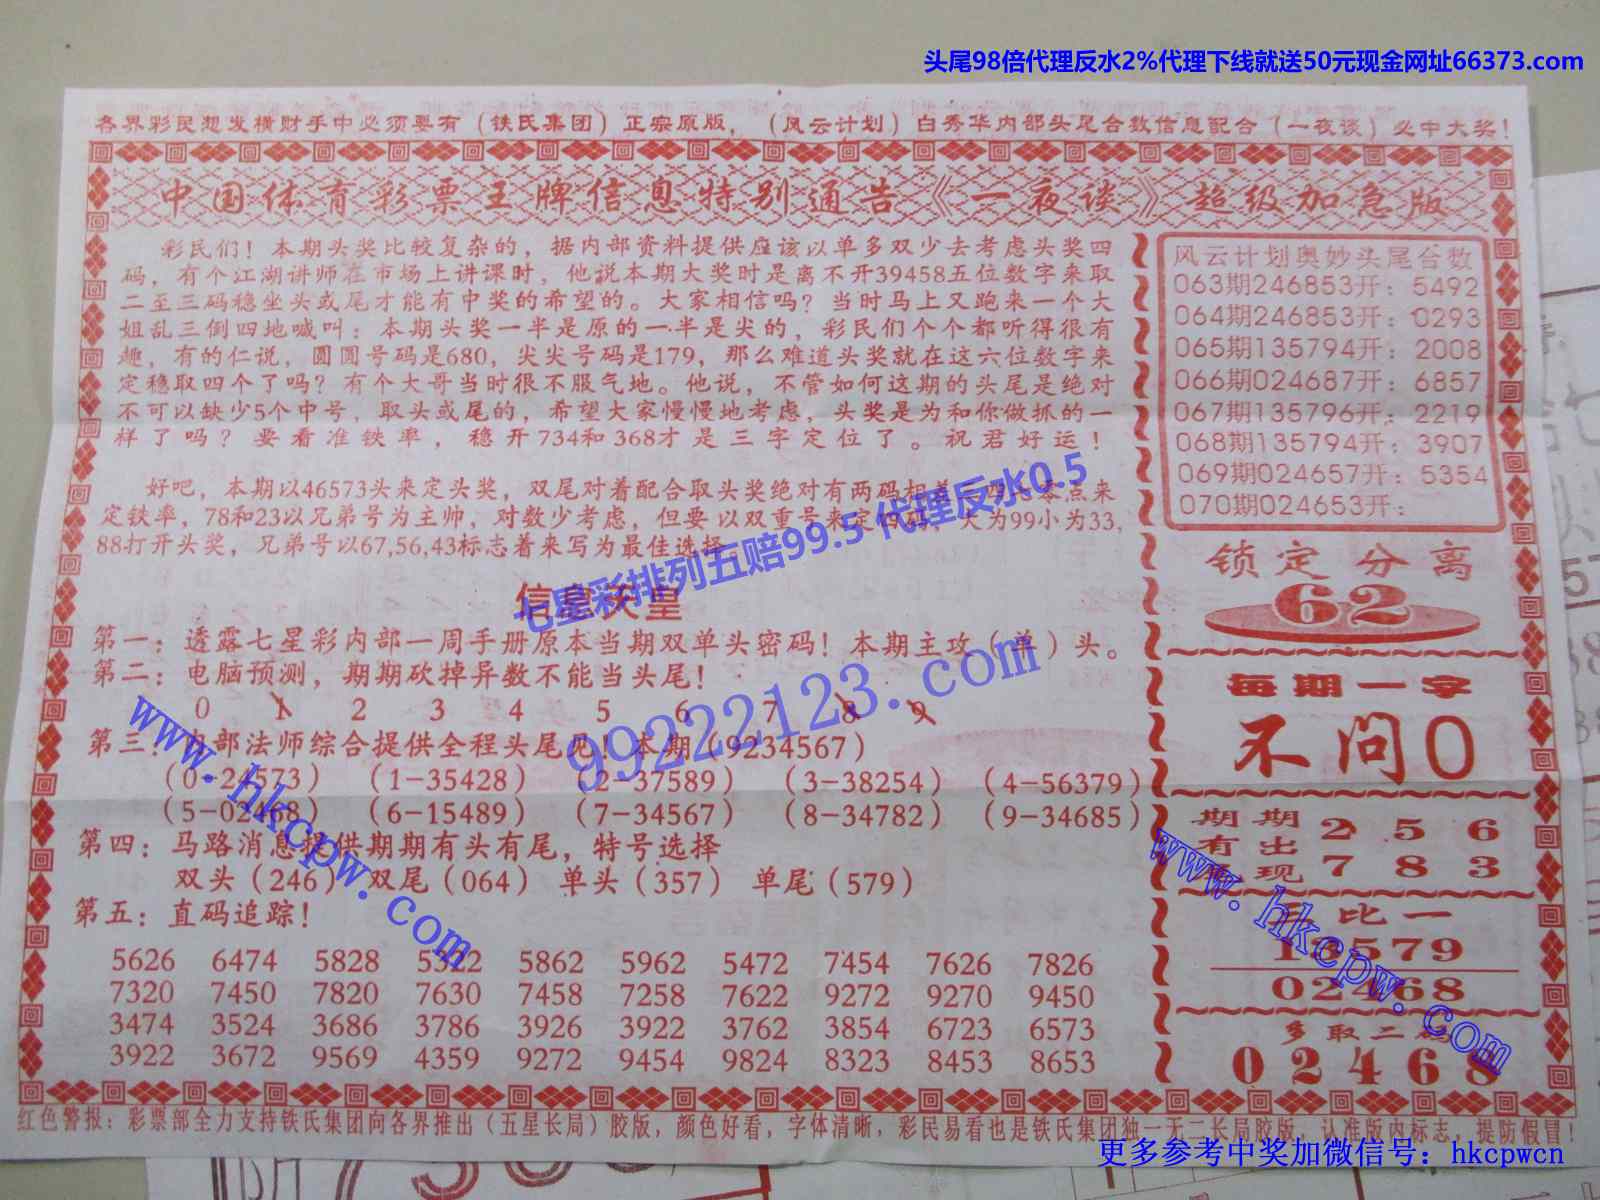 头尾98倍代理反水2%代理下线就送50元现金网址66373.com
各界彩民想发横财手中必须要有（铁氏集团）正宗原版，（风云计划）白秀华内部头尾合数信息配合（一夜谈）必中大奖！
中国体育彩票王牌信息特别通告《一夜谈》超级加急版
彩民们！本期头奖比较复杂的，据内部资料提供应该以单多双少去考虑头奖四
码，有个江湖讲师在市场上讲课时，他说本期大奖时是离不开39458五位数字来取
二至三码稳坐头或尾才能有中奖的希望的。大家相信吗？当时马上又跑来一个大
姐乱三倒四地喊叫：本期头奖一半是原的一半是尖的，彩民们个个都听得很有
趣，有的仁说，圆圆号码是680，尖尖号码是179，那么难道头奖就在这六位数字来
定稳取四个了吗？有个大哥当时很不服气地。他说，不管如何这期的头尾是绝对
不可以缺少5个中号，取头或尾的，希望大家慢慢地考虑，头奖是为和你做抓的一
样了吗？要看准铁率，稳开734和368才是三字定位了。祝君好运！
好吧，本期以46573头来定头奖，双尾对着配合取头奖绝对有两码相差
零点来
定铁率，78和23以兄弟号为主帅，对数少考虑，但要以双重号来定四码，大为99小为33，
88打开头奖，兄弟号以67,56,43标志着来写为最佳选择。
七星彩排列五赔99.5 代理反水0.5
信息
皇
第一：透露七星彩内部一周手册原本当期双单头密码！本期主攻（单）头。
第二：电脑预测，期期砍掉异数不能当头尾！
0 1 2 3 4 5 6 7 8 9
第三：内部法师综合提供全程头尾见！本期（9234567）
（0-24573）（1-35428）（2-37589）（3-38254）（4-56379）
（5-02468）（6-15489）（7-34567）（8-34782）（9-34685）
第四：马路消息提供期期有头有尾，特号选择
双头（246）双尾（064）单头（357）单尾（579）
第五：直码追踪！
5626 6474 5828 5322 5862 5962 5472 7454 7626 7826
7320 7450 7820 7630 7458 7258 7622 9272 9270 9450
3474 3524 3686 3786 3926 3922 3762 3854 6723 6573
3922 3672 9569 4359 9272 9454 9824 8323 8453 8653
99222123.com
www.hkcpw.com
风云计划奥妙头尾合数
063期246853开：5492
064期246853开：0293
065期135794开：2008
066期024687开：6857
067期135796开：2219
068期135794开：3907
069期024657开：5354
070期024653开：
锁定分离
62
每期一字
不问0
期期 2 5 6
有出
现 7 8 3
比一
13579
02468
多取二码
02468
www.hkcpw.com
红色警报：彩票部全力支持铁氏集团向各界推出（五星长局）胶版，颜色好看，字体清晰，彩民易看也是铁氏集团独一无二长局胶版，认准版内标志，提防假冒！
更多参考中奖加微信号：hkcpwcn